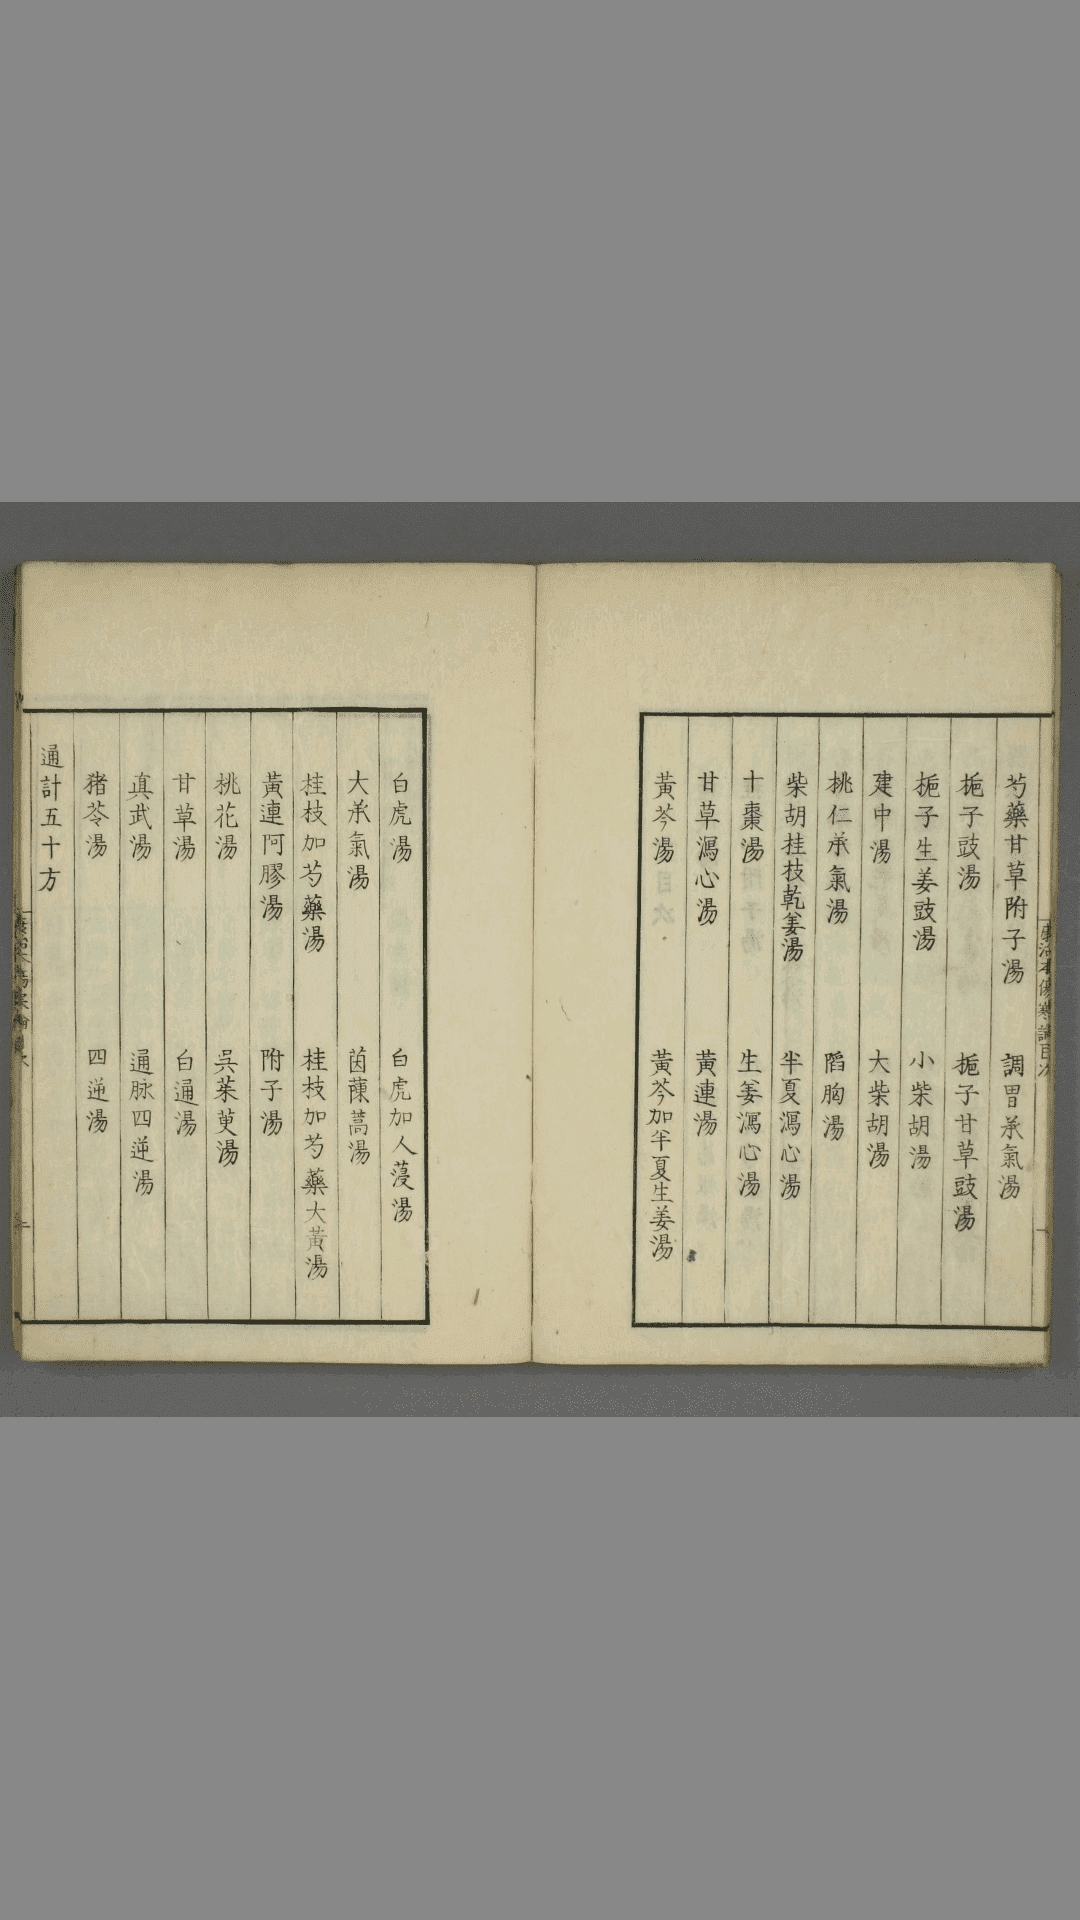 芍藥甘草附子湯　調胃承氣湯
梔子豉湯　梔子甘草豉湯
梔子生姜豉湯　小柴胡湯
建中湯　大柴胡湯
桃仁承氣湯　陷胸湯
柴胡桂枝乾姜湯　半夏瀉心湯
十棗湯　生姜瀉心湯
甘草瀉心湯　黃連湯
黃芩湯　黃芩加半夏生姜湯
白虎湯　白虎加人蓡湯
大承氣湯　茵蔯蒿湯
桂枝加芍藥湯　桂枝加芍藥大黃湯
黃連阿膠湯　附子湯
桃花湯　吳茱萸湯
甘草湯　白通湯
真武湯　通脉四逆湯
猪苓湯　四逆湯
通計五十方